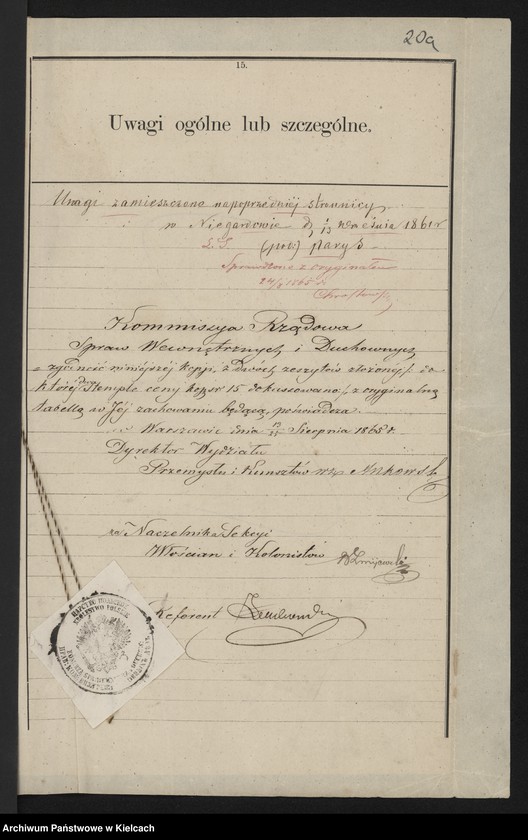 20a
15.
Uwagi ogólne lub szczególne.
Uwagi zamieszczono na poprzedniéj stronnicy
w Niegardowie d. 1/13 września 1861 r
L. S. (pod:) Parys
Sprawdzono z oryginałem
1865 r
Kommissya Rządowa
Spraw Wewnętrznych i Duchownych
zgodność niniejszéj kopji, z dwóch zeszytów złożonéj /: do
któréj dwa stemple ceny kop. sr 15 dokassowano :/ z oryginalną
tabellą w Jéj zachowaniu będącą, poświadcza.
w Warszawie dnia Sierpnia 1865 r.
Dyrektor Wydziału
Przemysłu i Kunsztów
za Naczelnika Sekcyi
Włościan i Kolonistów
Referent
Archiwum Państwowe w Kielcach